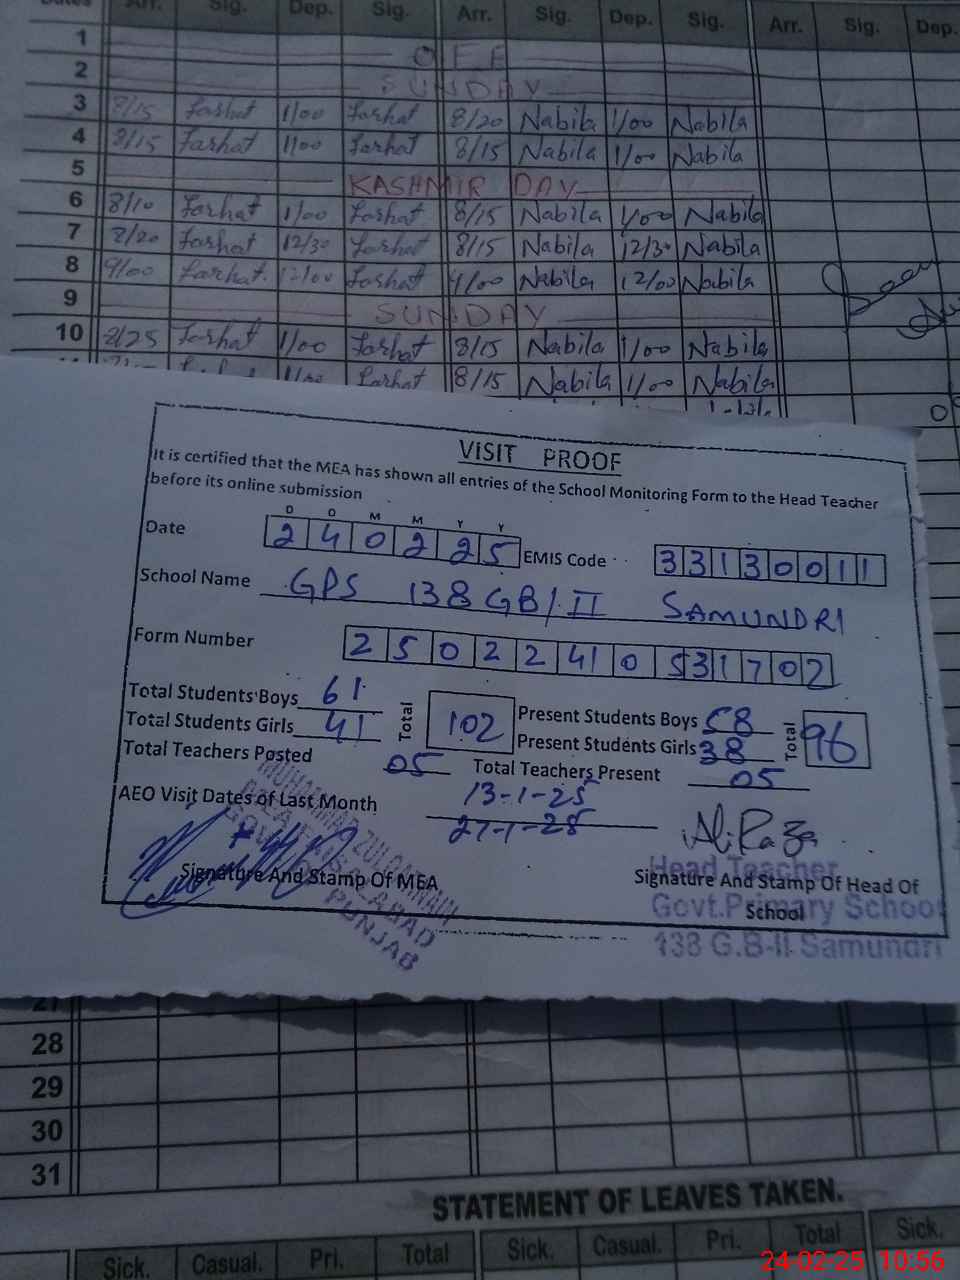 Dates Arr. Sig. Dep. Sig. Arr. Sig. Dep. Sig. Arr. Sig. Dep.
1 OFF
2 SUNDAY
3 8/15 Farhat 1/00 Farhat 8/20 Nabila 1/00 Nabila
4 8/15 Farhat 1/00 Farhat 8/15 Nabila 1/00 Nabila
5 KASHMIR DAY
6 8/10 Farhat 1/00 Farhat 8/15 Nabila 1/00 Nabila
7 8/20 Farhat 12/30 Farhat 8/15 Nabila 12/30 Nabila
8 9/00 Farhat. 12/00 Farhat Nabila 12/00 Nabila
9 SUNDAY
10 8/25 Farhat 1/00 Farhat 8/15 Nabila 1/00 Nabila
1/00 Farhat 8/15 Nabila 1/00 Nabila
VISIT PROOF
It is certified that the MEA has shown all entries of the School Monitoring Form to the Head Teacher
before its online submission
D D M M Y Y
Date 240225 EMIS Code 33130011
School Name GPS 138 GB/II SAMUNDRI
Form Number 25022410531702
Total Students Boys 61 Total 102 Present Students Boys 58 Total 96
Total Students Girls 41 Present Students Girls 38
Total Teachers Posted 05 Total Teachers Present 05
AEO Visit Dates of Last Month 13-1-25
27-1-25
Ali Raza
MUHAMMAD ZULQARNAIN
M.E.A FAISALABAD
GOVT. OF
PUNJAB
Signature And Stamp Of MEA
Head Teacher
Signature And Stamp Of Head Of
School
Govt.Primary School
138 G.B-II Samundri
27
28
29
30
31
STATEMENT OF LEAVES TAKEN.
Sick. Casual. Pri. Total Sick. Casual. Pri. Total Sick.
24-02-25 10:56